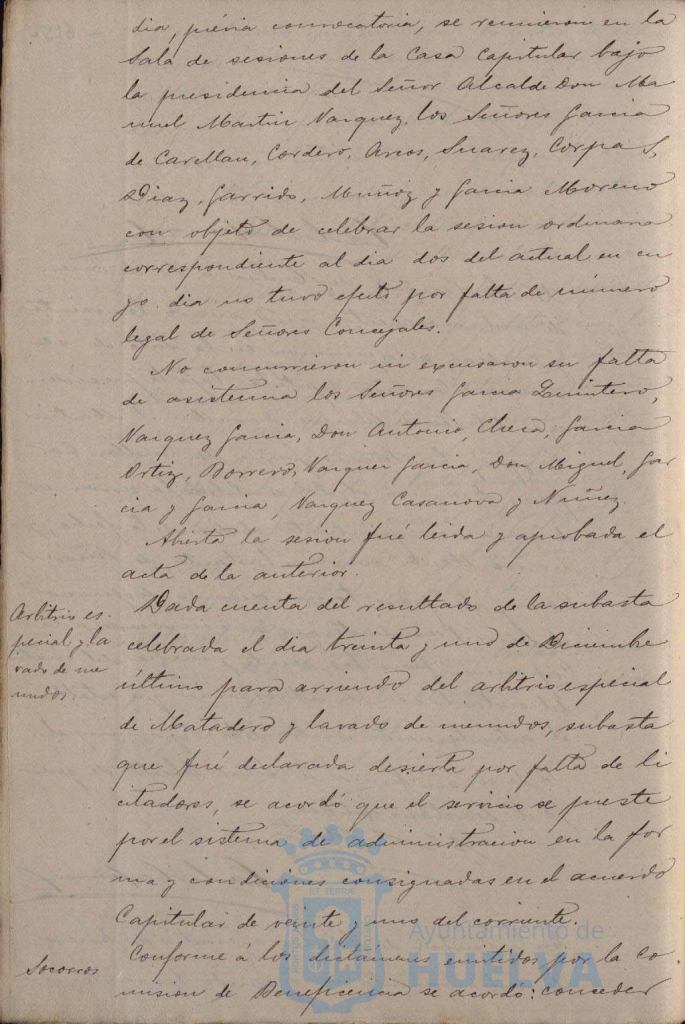 dia, prévia convocatoria, se reunieron en la
Sala de sesiones de la Casa Capitular bajo
la presidencia del Señor Alcalde Don Ma
nuel Martin Vazquez, los Señores Garcia
de Carellan, Cordero, Arcos, Suarez, Corpas,
Diaz, Garrido, Muñoz y Garcia Moreno
con objeto de celebrar la sesion ordinaria
correspondiente al dia dos del actual en cu
yo dia no tuvo efecto por falta de número
legal de Señores Concejales.
No concurrieron ni excusaron su falta
de asistencia los Señores Garcia Quintero,
Vazquez Garcia, Don Antonio, Checa, Garcia
Ortiz, Borrero, Vazquez Garcia, Don Miguel, Gar
cia y Garcia, Vazquez Casanova y Nuñez.
Abierta la sesion fué leida y aprobada el
acta de la anterior.
Arbitrio es-
pecial y la
vado de me
nudos.
Dada cuenta del resultado de la subasta
celebrada el dia treinta y uno de Diciembre
último para arriendo del arbitrio especial
de Matadero y lavado de menudos, subasta
que fué declarada desierta por falta de li
citadores, se acordó que el servicio se preste
por el sistema de administracion en la for
ma y condiciones consignadas en el acuerdo
Capitular de veinte y uno del corriente.
Socorros
Conforme á los dictámenes emitidos por la Co
mision de Beneficencia se acordó: conceder
Ayuntamiento de
HUELVA